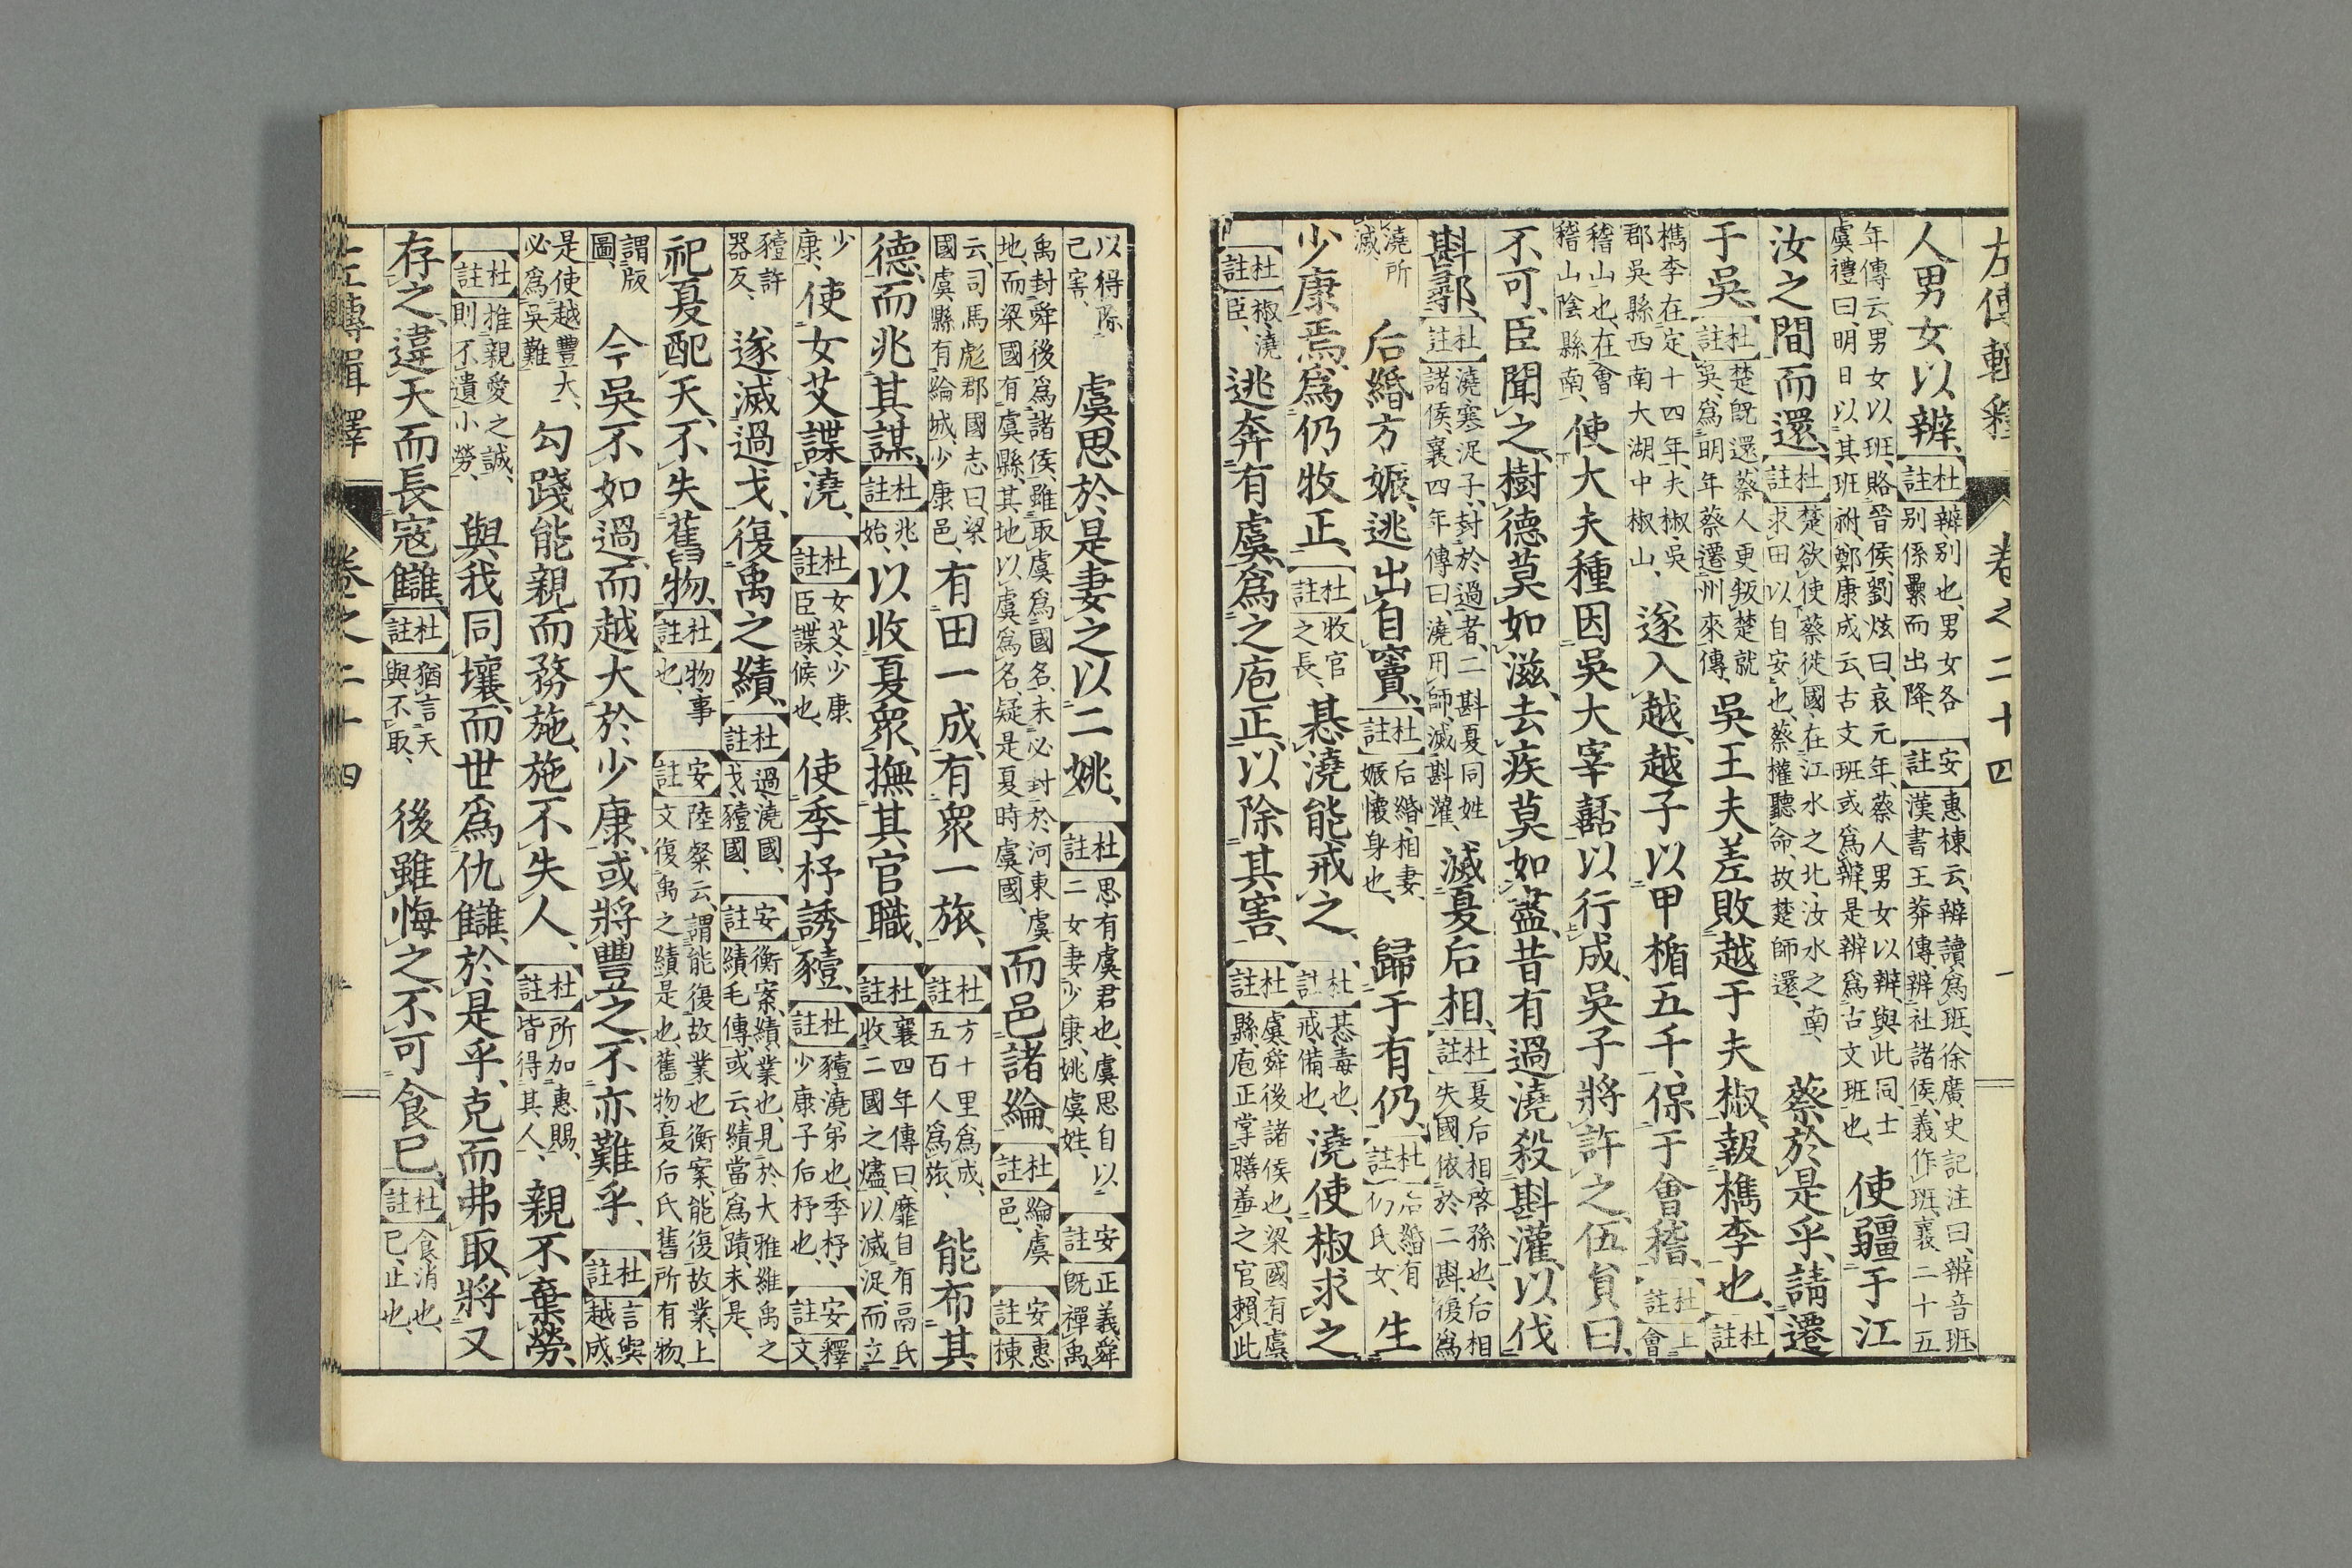 左傳輯釋 卷之二十四 一
人男女以辨、杜註辨、別也、男女各別係纍而出降、安註惠棟云、辨讀爲班、徐廣史記注曰、辨音班、漢書王莽傳、辨社諸侯、義作班、襄二十五
年傳云、男女以班、賂晉侯、劉炫曰、哀元年、蔡人男女以辨、與此同、士虞禮曰、明日以其班祔、鄭康成云、古文班或爲辨、是辨爲古文班也、使疆于江
汝之間而還、杜註楚欲使蔡徙國、在江水之北、汝水之南、求田以自安也、蔡權聽命、故楚師還、蔡於是乎、請遷
于吳、杜註楚既還、蔡人更叛楚就吳、爲明年蔡遷州來傳、吳王夫差敗越于夫椒、報檇李也、杜註
檇李在定十四年、夫椒、吳郡吳縣西南大湖中椒山、遂入越、越子以甲楯五千、保于會稽、杜註上會
稽山也、在會稽山陰縣南、使大夫種因吳大宰嚭以行成、吳子將許之、伍員曰、
不可、臣聞之、樹德莫如滋、去疾莫如盡、昔有過澆殺斟灌、以伐
斟鄩、杜註澆寒浞子、封於過者、二斟夏同姓諸侯、襄四年傳曰、澆用師、滅斟灌、滅夏后相、杜註夏后相、啓孫也、后相失國依於二斟、復爲
澆所滅、后緡方娠、逃出自竇、杜註后緡、相妻、娠懷身也、歸于有仍、杜註后緡有仍氏女、生
少康焉、爲仍牧正、杜註牧官之長、惎澆能戒之、杜註惎毒也、戒、備也、澆使椒求之
杜註椒、澆臣、逃奔有虞、爲之庖正、以除其害、杜註虞舜後諸侯也、梁國有虞縣、庖正掌膳羞之官、賴此
以得除己害、虞思於是妻之以二姚、杜註思、有虞君也、虞思自以二女妻少康、姚虞姓、安註正義、舜既禪禹、
禹封舜後爲諸侯、雖取虞爲國名、未必封於河東虞地、而梁國有虞縣、其地以虞爲名、疑是夏時虞國、而邑諸綸、杜註綸、虞邑、安註惠棟
云、司馬彪郡國志曰、梁國虞縣有綸城、少康邑、有田一成、有衆一旅、杜註方十里爲成、五百人爲旅、能布其
德、而兆其謀、杜註兆、始、以收夏衆、撫其官職、杜註襄四年傳曰、靡自有鬲氏收二國之燼、以滅浞、而立
少康、使女艾諜澆、杜註女艾、少康臣、諜、候也、使季杼誘豷、杜註豷、澆弟也、季杼、少康子后杼也、安註釋文、
豷許器反、遂滅過戈、復禹之績、杜註過、澆國、戈、豷國、安註衡案、績、業也、見於大雅維禹之績毛傳、或云、績當爲蹟、未是、
祀夏配天、不失舊物、杜註物、事也、安註陸粲云、謂能復故業也、衡案、能復故業、上文復禹之績是也、舊物、夏后氏舊所有物、
謂版圖、今吳不如過、而越大於少康、或將豐之、不亦難乎、杜註言與越成、
是使越豐大、必爲吳難、勾踐能親而務施、施不失人、杜註所加惠賜、皆得其人、親不棄勞、
杜註推親愛之誠、則不遺小勞、與我同壤、而世爲仇讎、於是乎、克而弗取、將又
存之、違天而長寇讎、杜註猶言天與不取、後雖悔之、不可食已、杜註食、消也、已、止也、
左傳輯釋 卷之二十四